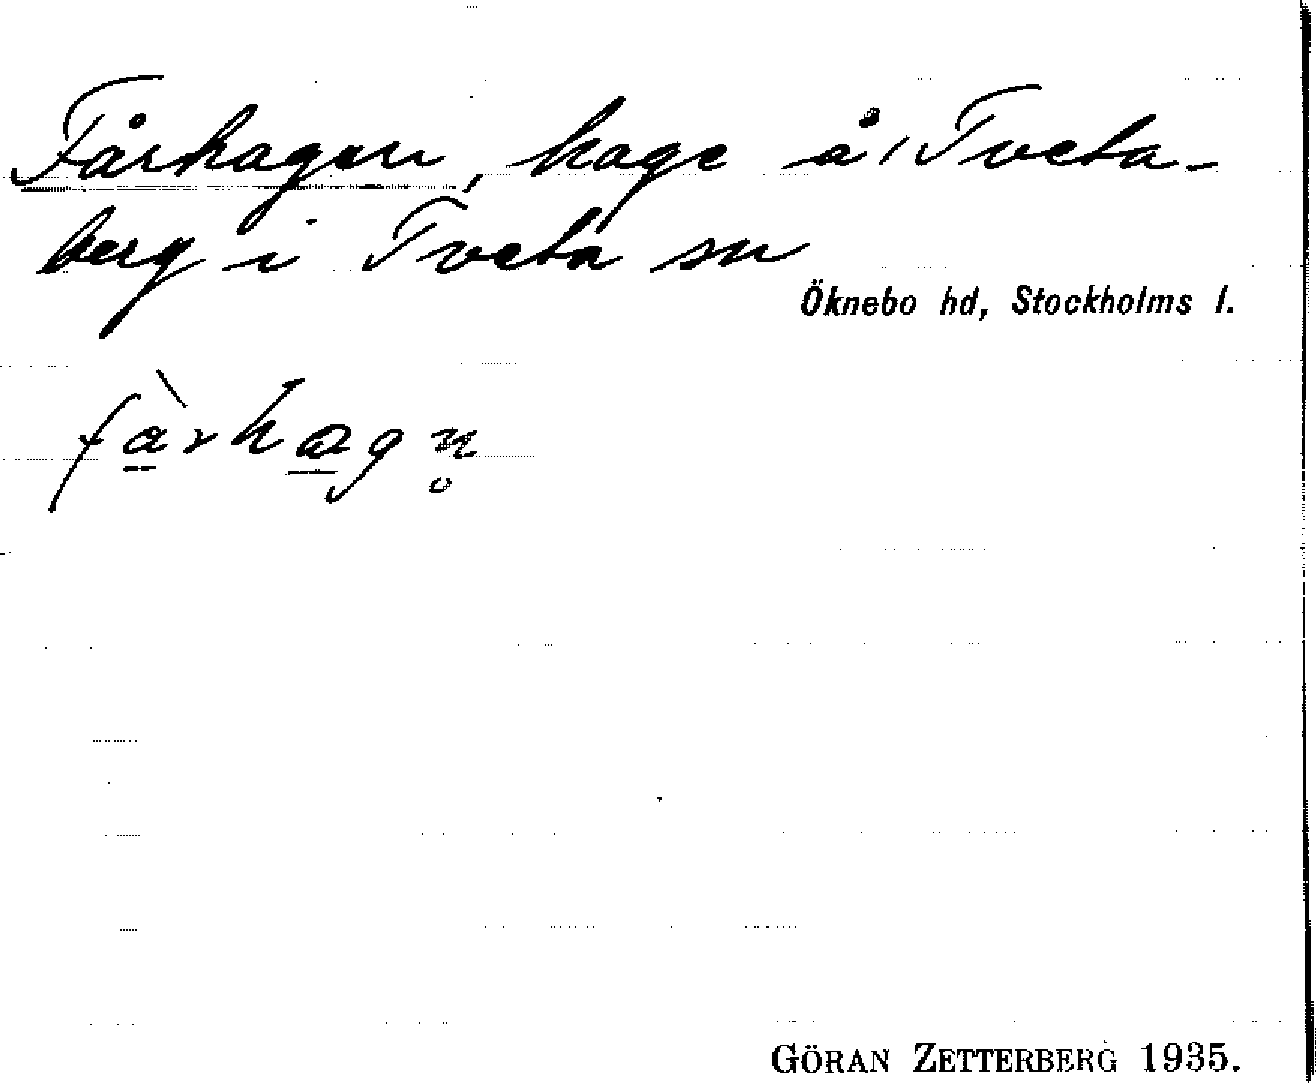 Fårhagen, hage å Tveta-
berg i Tveta sn
Öknebo hd, Stockholms l.
fàrhagn̥
GÖRAN ZETTERBERG 1935.